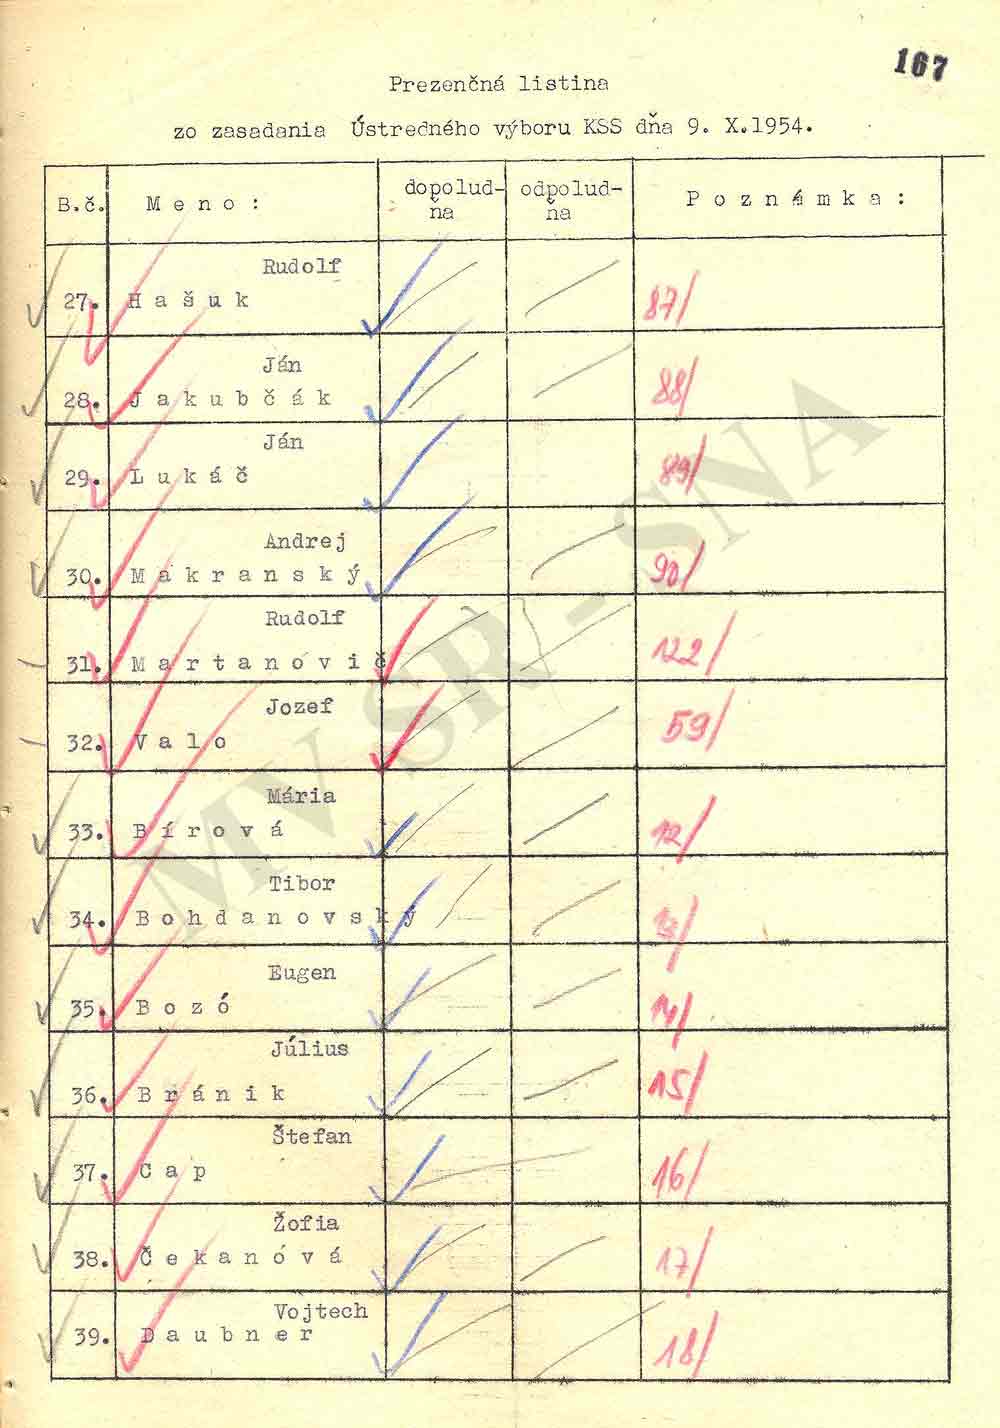 167
Prezenčná listina
zo zasadania Ústredného výboru KSS dňa 9. X.1954.
B.č. M e n o : dopolud- odpolud- P o z n á m k a :
ňa ňa
Rudolf
27. H a š u k 87/
Ján
28. J a k u b č á k 88/
Ján
29. L u k á č 89/
Andrej
30. M a k r a n s k ý 90/
Rudolf
31. M a r t a n o v i č 122/
Jozef
32. V a l o 59/
Mária
33. B í r o v á 12/
Tibor
34. B o h d a n o v s k ý 13/
Eugen
35. B o z ó 14/
Július
36. B r á n i k 15/
Štefan
37. C a p 16/
Žofia
38. Č e k a n o v á 17/
Vojtech
39. D a u b n e r 18/
MV SR - SNA